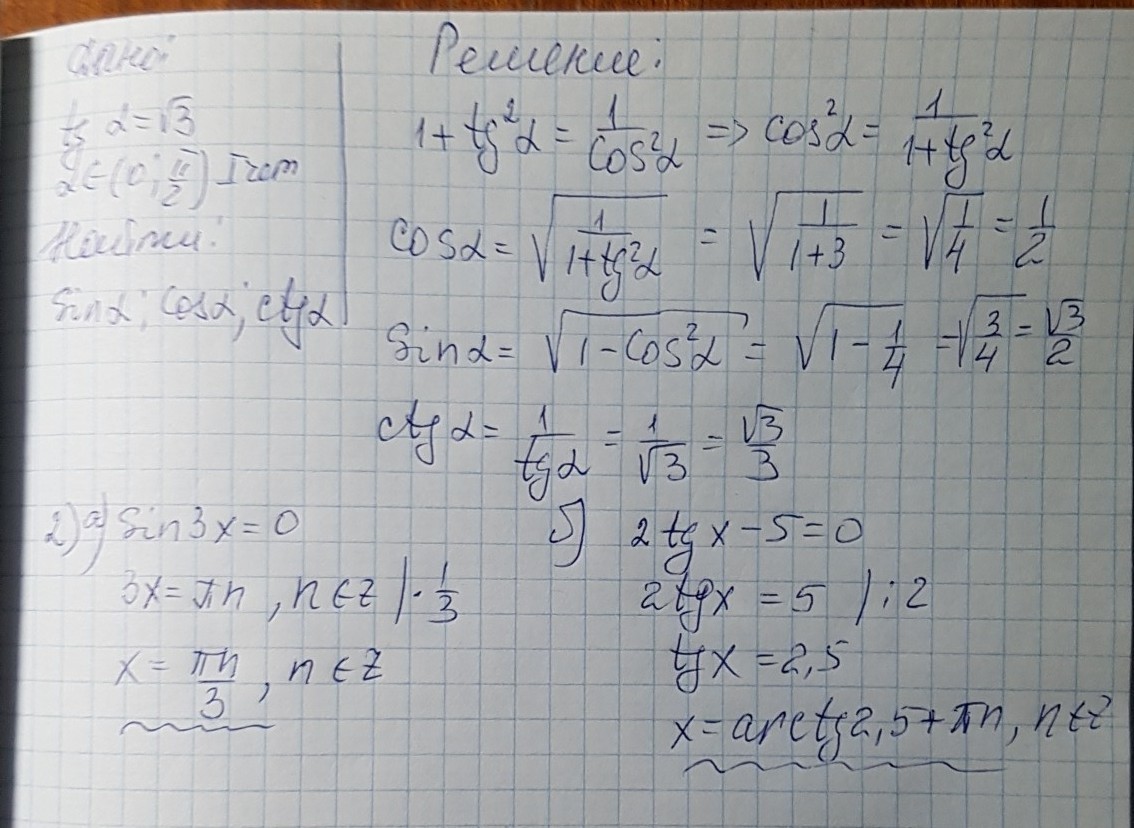 Дано:
tg α = √3
α ∈ (0; π/2) I чет
Найти:
Sinα; Cosα; ctgα
Решение:
1 + tg²α = 1/Cos²α => Cos²α = 1/(1+tg²α)
Cosα = √(1/(1+tg²α)) = √(1/(1+3)) = √(1/4) = 1/2
Sinα = √(1-Cos²α) = √(1-1/4) = √(3/4) = √3/2
ctgα = 1/tgα = 1/√3 = √3/3
2) а) Sin3x = 0
3x = πn , n ∈ z | · 1/3
x = πn/3 , n ∈ z
б) 2tgx - 5 = 0
2tgx = 5 | : 2
tgx = 2,5
x = arctg2,5 + πn, n ∈ z